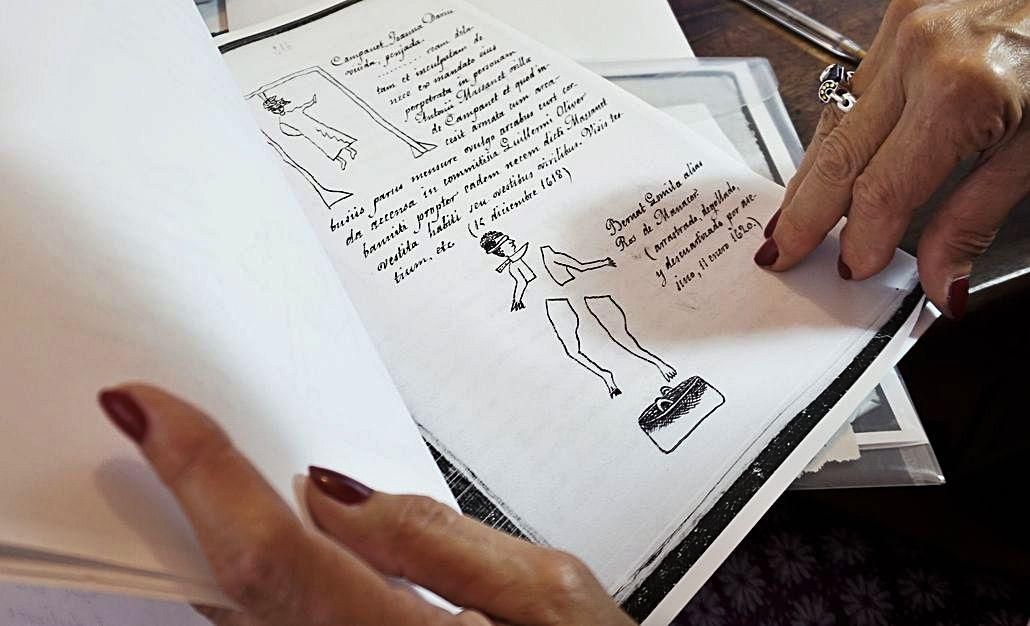 Campanet, Juana
viuda, penjada.
......... ream dela-
tam et inculpatam de
nece ex mandato eius
perpetrata in personam
Antonii Massanet, villa
de Campanet et quod in-
cesit armata cum arca-
busiis parvis mensure vulgo arcabus curt cor-
da accensa in commitiva Guillermi Oliver
banniti propter eadem necem dicti Massanet
vestita habiti seu vestibus virilibus. Visis tes-
tium, etc. (14 diciembre 1618)
Bernat Gomila alias
Ros de Manacor
(arrastrado, degollado,
y descuartizado por ase-
sino, 11 enero 1620.)